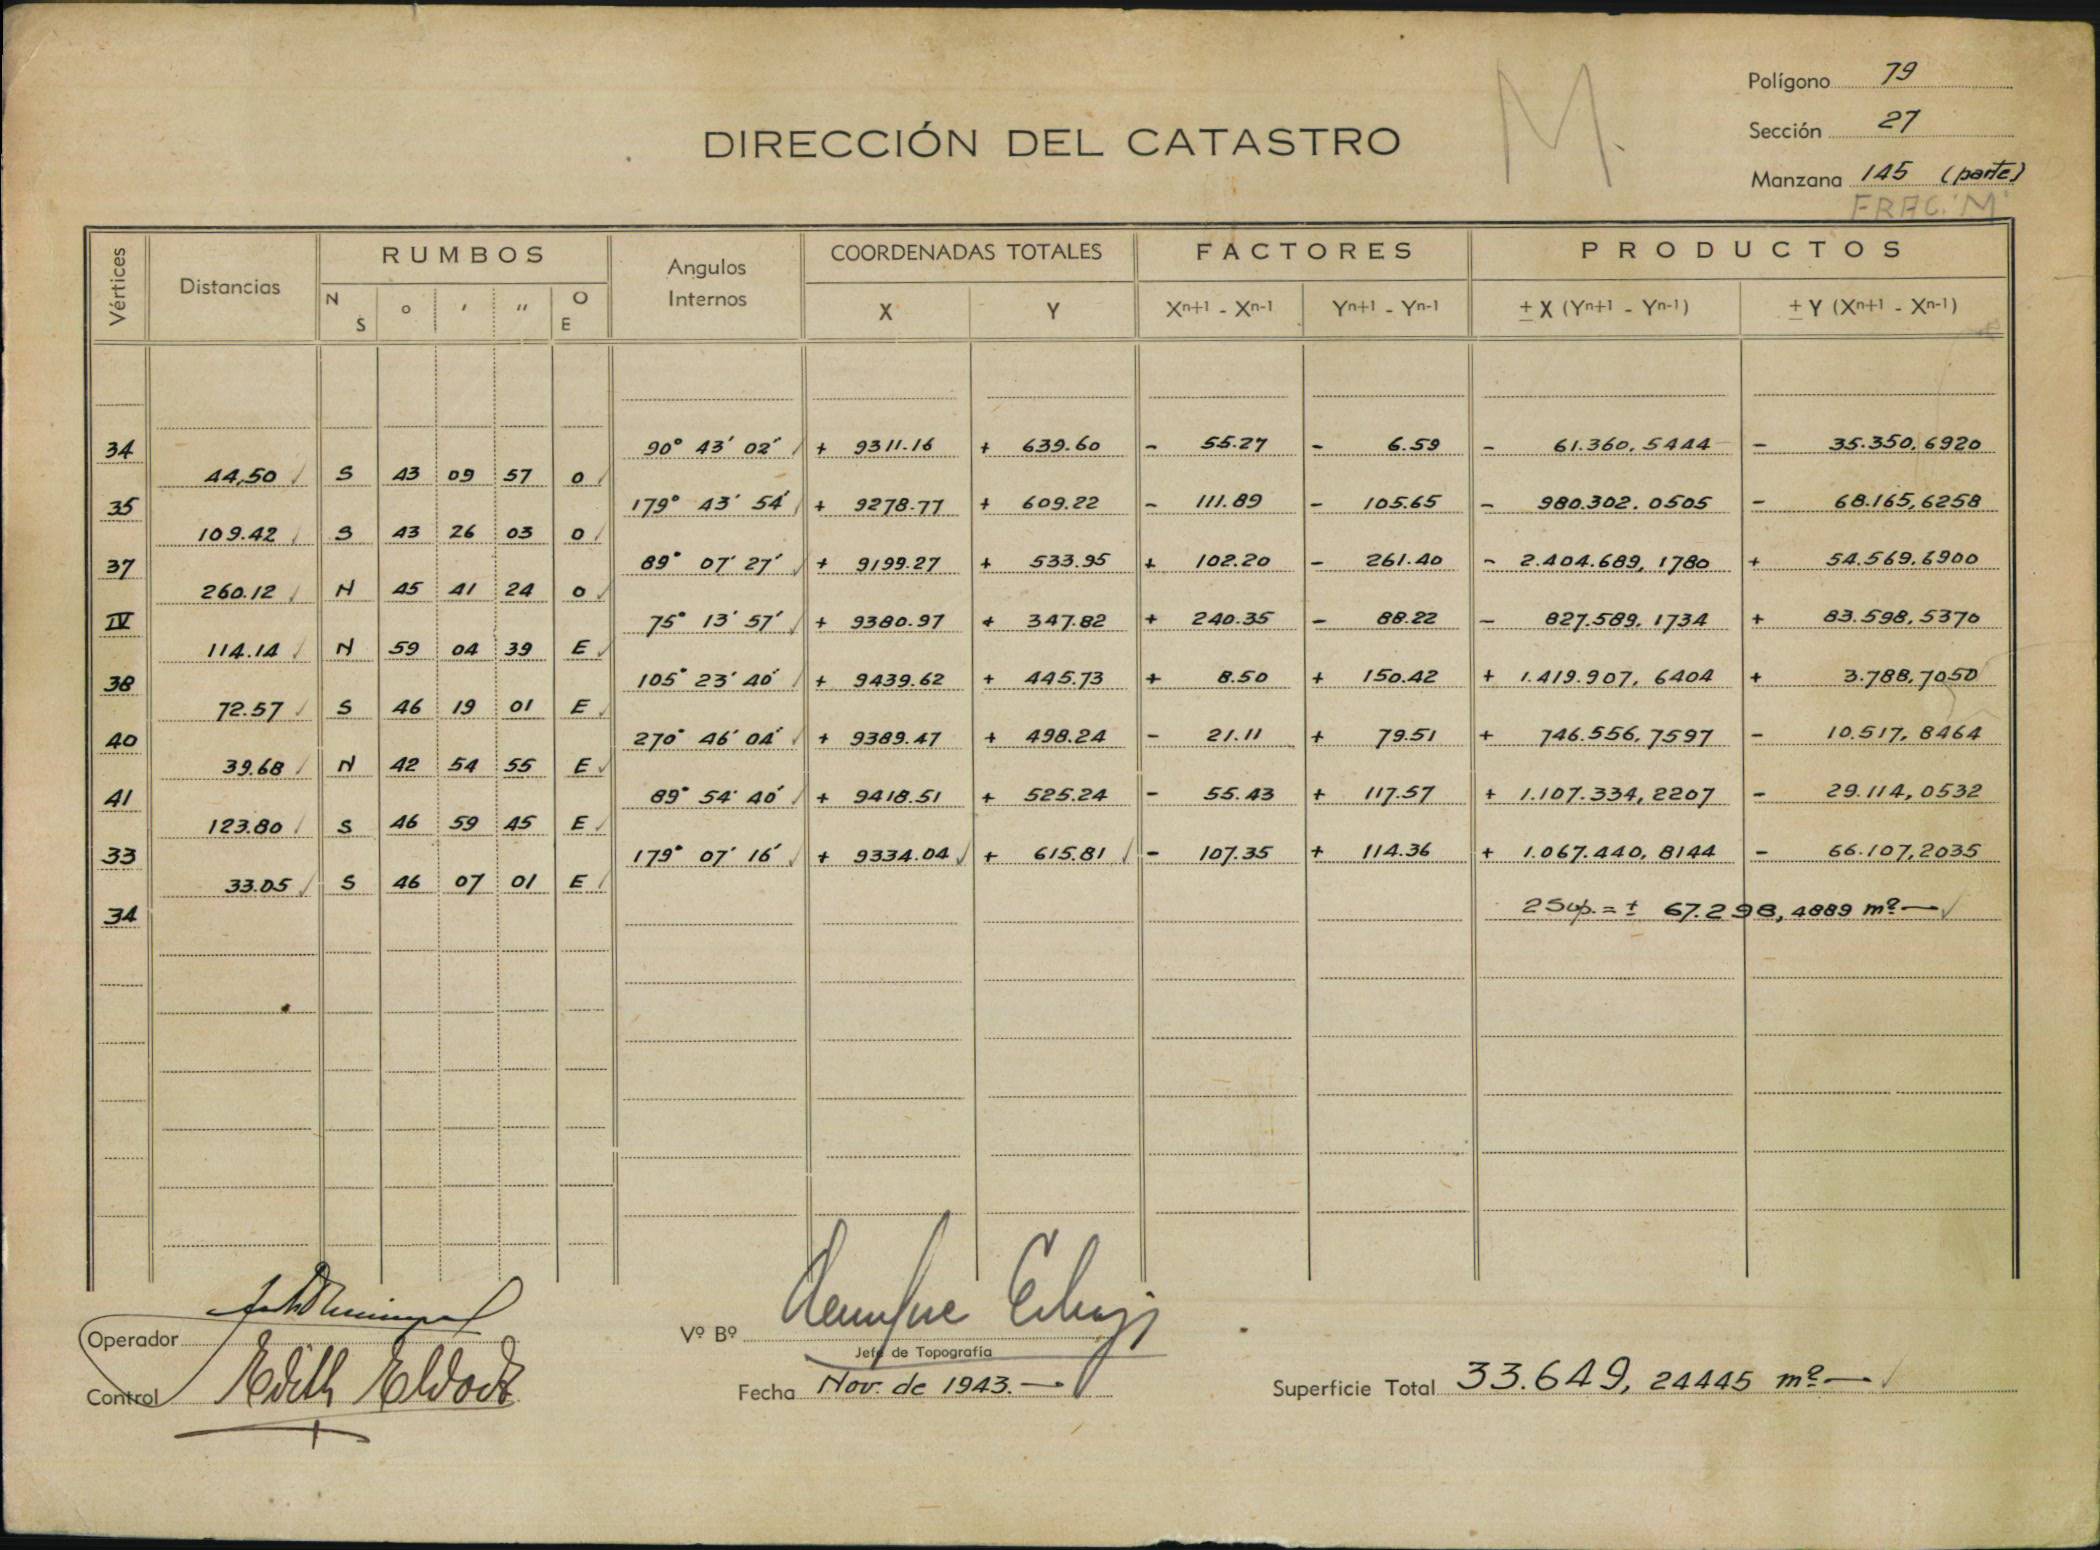 Polígono 79
DIRECCIÓN DEL CATASTRO M. Sección 27
Manzana 145 (parte)
FRAC. "M"
Vértices Distancias RUMBOS Angulos Internos COORDENADAS TOTALES FACTORES PRODUCTOS
N S ° ' " O E X Y Xn+1 - Xn-1 Yn+1 - Yn-1 ± X (Yn+1 - Yn-1) ± Y (Xn+1 - Xn-1)
34 90° 43' 02' + 9311.16 + 639.60 - 55.27 - 6.59 - 61.360,5444 - 35.350,6920
44,50 S 43 09 57 O
35 179° 43' 54' + 9278.77 + 609.22 - 111.89 - 105.65 - 980.302.0505 - 68.165,6258
109.42 S 43 26 03 O
37 89° 07' 27' + 9199.27 + 533.95 + 102.20 - 261.40 - 2.404.689,1780 + 54.569,6900
260.12 N 45 41 24 O
IV 75° 13' 57' + 9380.97 + 347.82 + 240.35 - 88.22 - 827.589,1734 + 83.598,5370
114.14 N 59 04 39 E
38 105° 23' 40' + 9439.62 + 445.73 + 8.50 + 150.42 + 1.419.907,6404 + 3.788,7050
72.57 S 46 19 01 E
40 270° 46' 04' + 9389.47 + 498.24 - 21.11 + 79.51 + 746.556,7597 - 10.517,8464
39.68 N 42 54 55 E
41 89° 54' 40' + 9418.51 + 525.24 - 55.43 + 117.57 + 1.107.334,2207 - 29.114,0532
123.80 S 46 59 45 E
33 179° 07' 16' + 9334.04 + 615.81 - 107.35 + 114.36 + 1.067.440,8144 - 66.107,2035
33.05 S 46 07 01 E
34 2 Sup. = ± 67.298,4889 m²
Operador
Vº Bº
Jefe de Topografía
Control Edith
Fecha Nov. de 1943.
Superficie Total 33.649,24445 m²